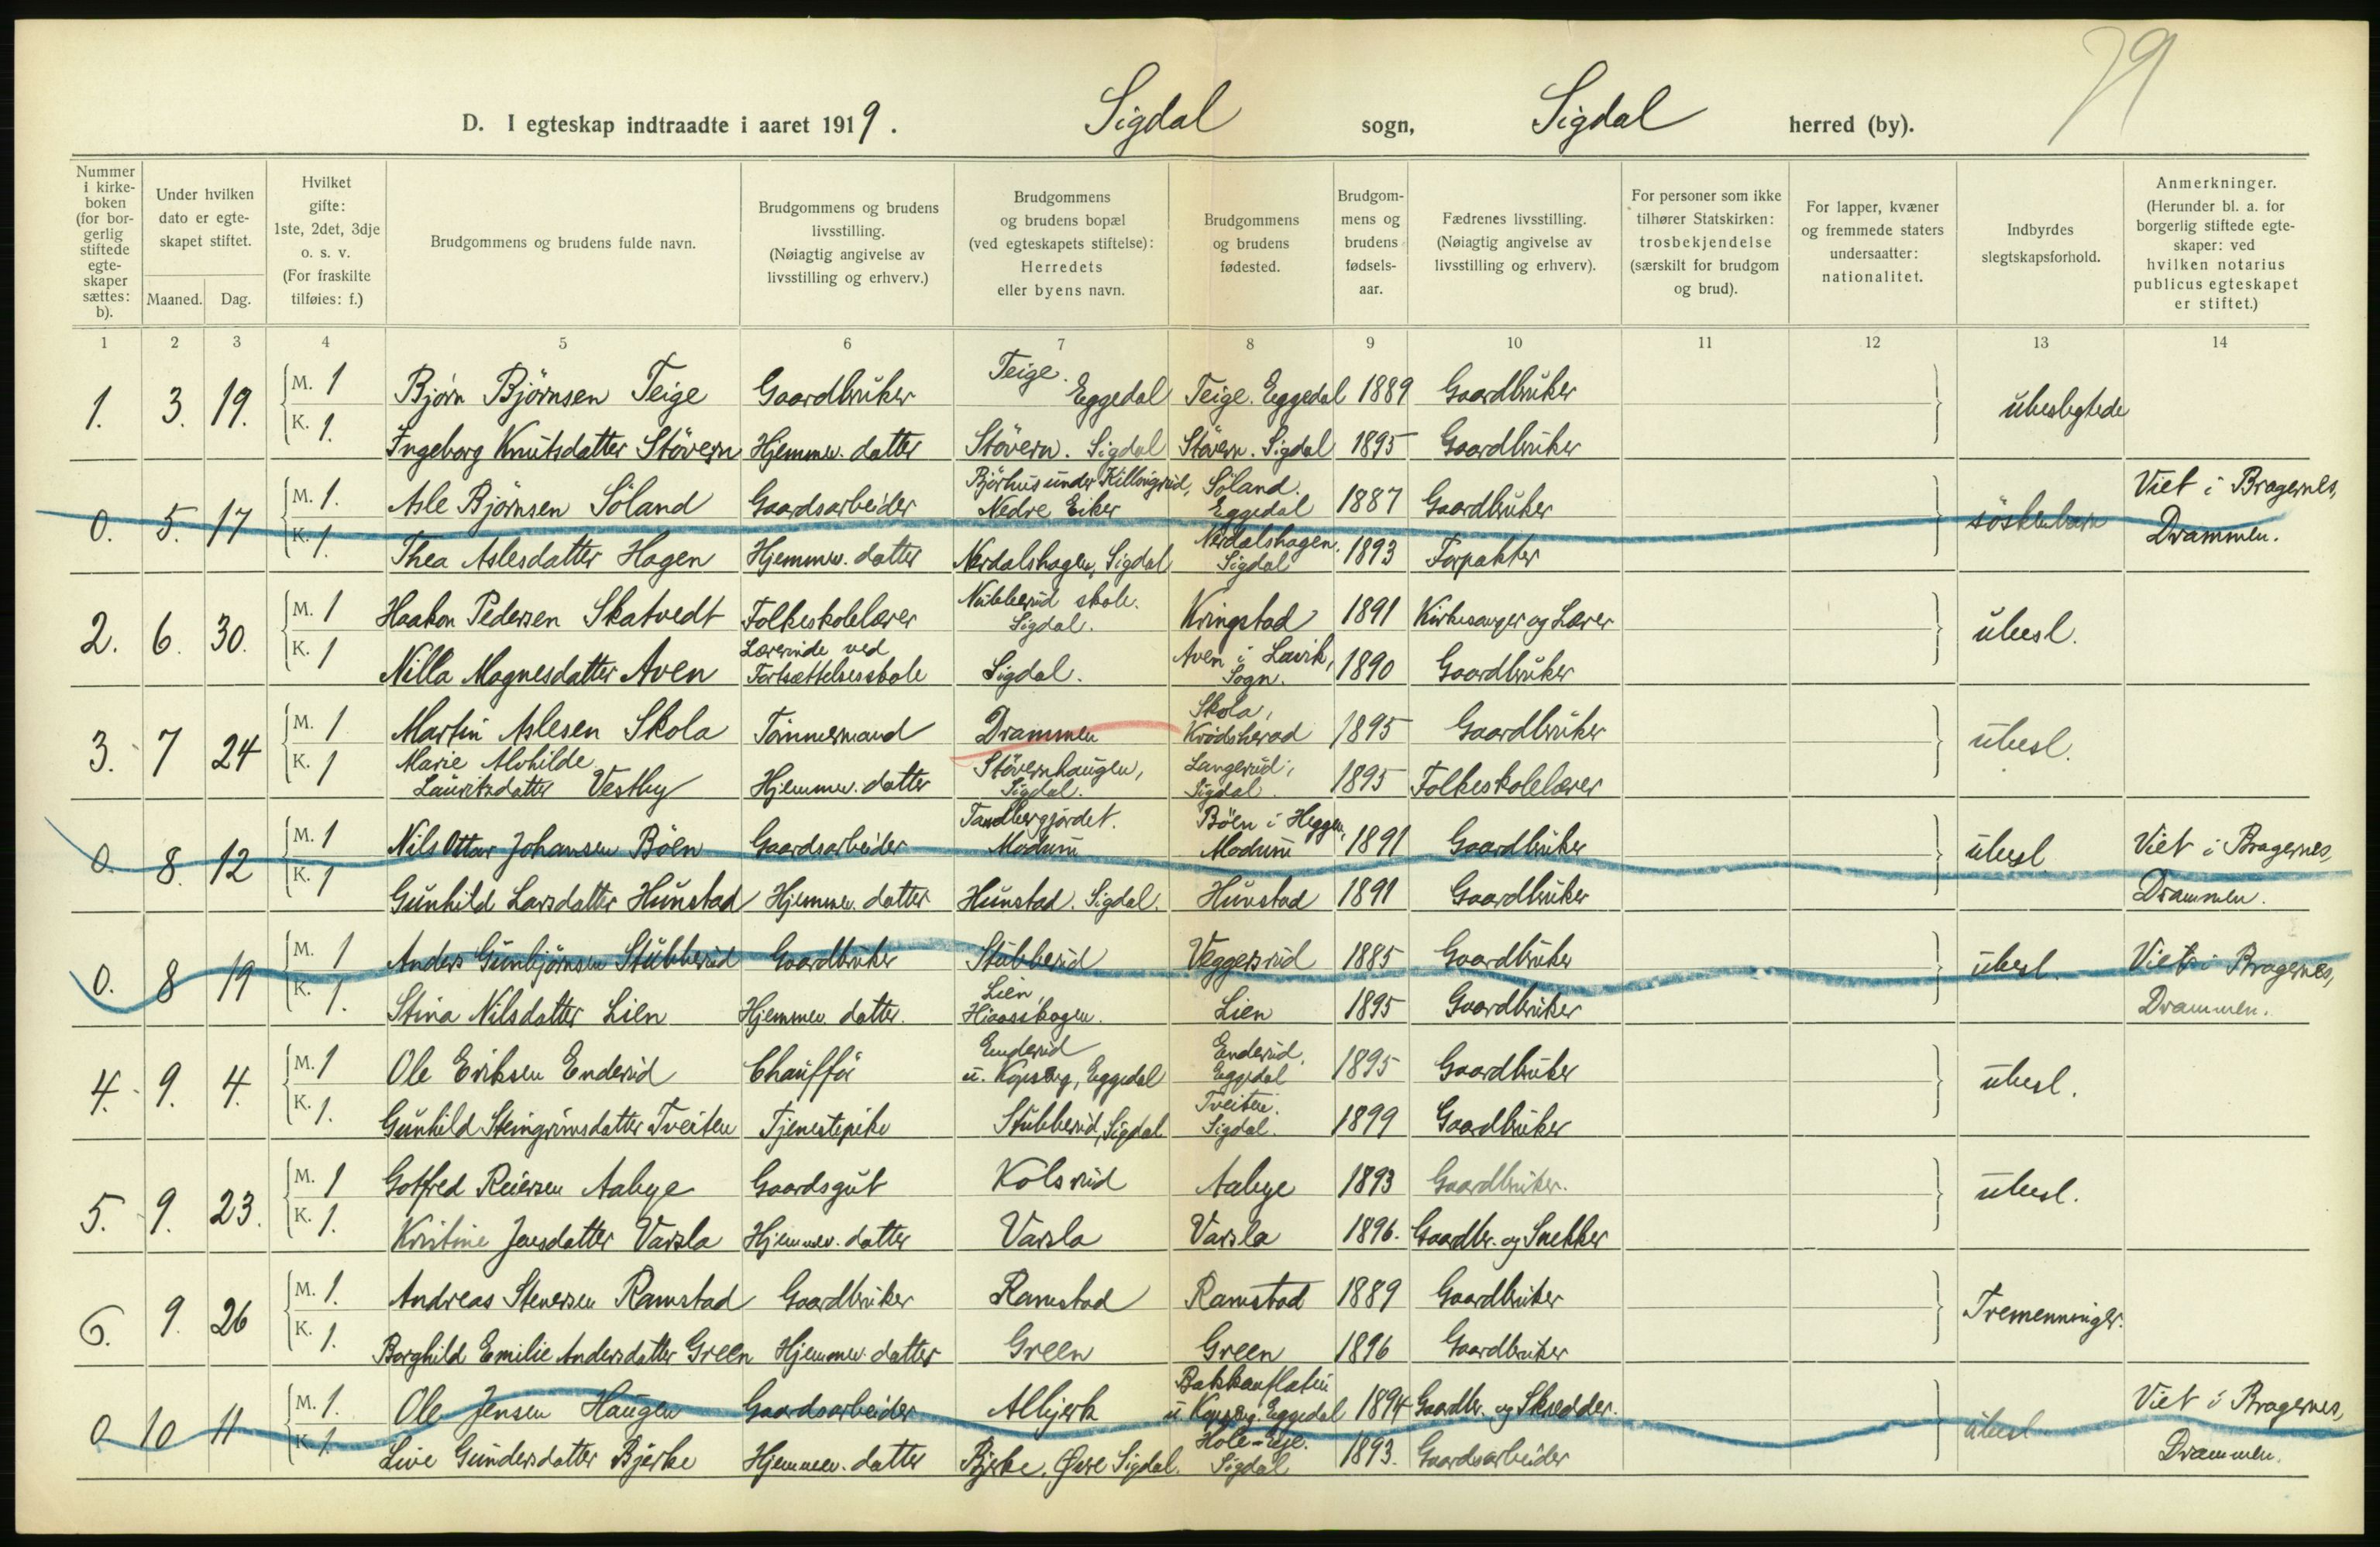 79
D. I egteskap indtraadte i aaret 1919. Sigdal sogn, Sigdal herred (by).
Nummer i kirkeboken (for borgerlig stiftede egteskaper sættes: b).
Under hvilken dato er egteskapet stiftet.
Maaned. Dag.
Hvilket gifte: 1ste, 2det, 3dje o. s. v. (For fraskilte tilføies: f.)
Brudgommens og brudens fulde navn.
Brudgommens og brudens livsstilling. (Nøiagtig angivelse av livsstilling og erhverv.)
Brudgommens og brudens bopæl (ved egteskapets stiftelse): Herredets eller byens navn.
Brudgommens og brudens fødested.
Brudgommens og brudens fødselsaar.
Fædrenes livsstilling. (Nøiagtig angivelse av livsstilling og erhverv).
For personer som ikke tilhører Statskirken: trosbekjendelse (særskilt for brudgom og brud).
For lapper, kvæner og fremmede staters undersaatter: nationalitet.
Indbyrdes slegtskapsforhold.
Anmerkninger. (Herunder bl. a. for borgerlig stiftede egteskaper: ved hvilken notarius publicus egteskapet er stiftet.)
1 2 3 4 5 6 7 8 9 10 11 12 13 14
1. 3. 19. M. 1 Bjørn Björnsen Teige Gaardbrüker Teige. Eggedal Teige. Eggedal 1889 Gaardbrüker übeslegtede
K. 1. Ingeborg Knutsdatter Støvern Hjemmev. datter Støvern. Sigdal Støvern. Sigdal 1895 Gaardbrüker
0. 5. 17 M. 1. Asle Bjørnsen Söland Gaardsarbeider Bjørhus under Killingrud, Nedre Eiker Söland. Eggedal 1887 Gaardbrüker söskenbarn Viet i Bragernes,
K. 1. Thea Aslesdatter Hagen Hjemmev. datter Nerdalshagen, Sigdal Nerdalshagen. Sigdal 1893 Forpakter Drammen.
2. 6. 30. M. 1 Haakon Pedersen Skatvedt Folkeskolelærer Nübberüd skole. Sigdal. Kringstad 1891 Kirkesanger og Lærer übesl.
K. 1 Nilla Magnesdatter Aven Lærerinde ved Fortsættelsesskole Sigdal. Aven i Lavik, Sogn. 1890 Gaardbrüker
3. 7 24 M. 1 Martin Aslesen Skola Tømmermand Drammen Skola, Krødsherad 1895 Gaardbrüker übesl.
K. 1 Marie Alvhilde Lauritzdatter Vestby Hjemmev. datter Støvernhaugen, Sigdal. Langerüd, Sigdal. 1895 Folkeskolelærer
0. 8. 12 M. 1 Nils Ottar Johansen Böen Gaardsarbeider Tandbergjordet. Modum Böen i Heggen, Modum 1891 Gaardbrüker übesl Viet i Bragernes,
K. 1 Günhild Larsdatter Hünstad Hjemmev. datter Hünstad. Sigdal. Hünstad 1891 Gaardbrüker Drammen.
0. 8 19 M. 1 Anders Günbjörnsen Stübberüd Gaardbrüker Stübberüd Veggersrüd 1885 Gaardbrüker übesl. Viet i Bragernes,
K. 1. Stina Nilsdatter Lien Hjemmev. datter. Lien, Hiaasskogen. Lien 1895 Gaardbrüker Drammen.
4. 9. 4. M. 1 Ole Eriksen Enderüd Chauffør Enderüd u. Kopseng, Eggedal Enderüd, Eggedal 1895 Gaardbrüker übesl.
K. 1. Günhild Steingrimsdatter Tveiten Tjenestepike Stübberüd, Sigdal Tveiten. Sigdal. 1899 Gaardbrüker
5. 9. 23. M. 1 Gotfred Reiersen Aabye Gaardsgüt Kolsrüd Aabye 1893 Gaardbrüker. übesl.
K. 1. Kristine Jensdatter Varsla Hjemmev. datter Varsla Varsla 1896. Gaardbr. og Snekker
6. 9. 26 M. 1. Andreas Stenersen Ramstad Gaardbrüker Ramstad Ramstad 1889 Gaardbrüker Tremenninger.
K. 1. Borghild Emilie Andersdatter Green Hjemmev. datter Green Green 1896 Gaardbrüker
0 10 11 M. 1. Ole Jensen Haugen Gaardsarbeider Albjerk Bakkanflaten u. Kopseng. Eggedal 1894 Gaardbr. og Skredder. übesl Viet i Bragernes,
K. 1. Live Gündersdatter Bjerke Hjemmev. datter Bjerke. Øvre Sigdal. Hole-Eje. Sigdal 1893. Gaardsarbeider Drammen.